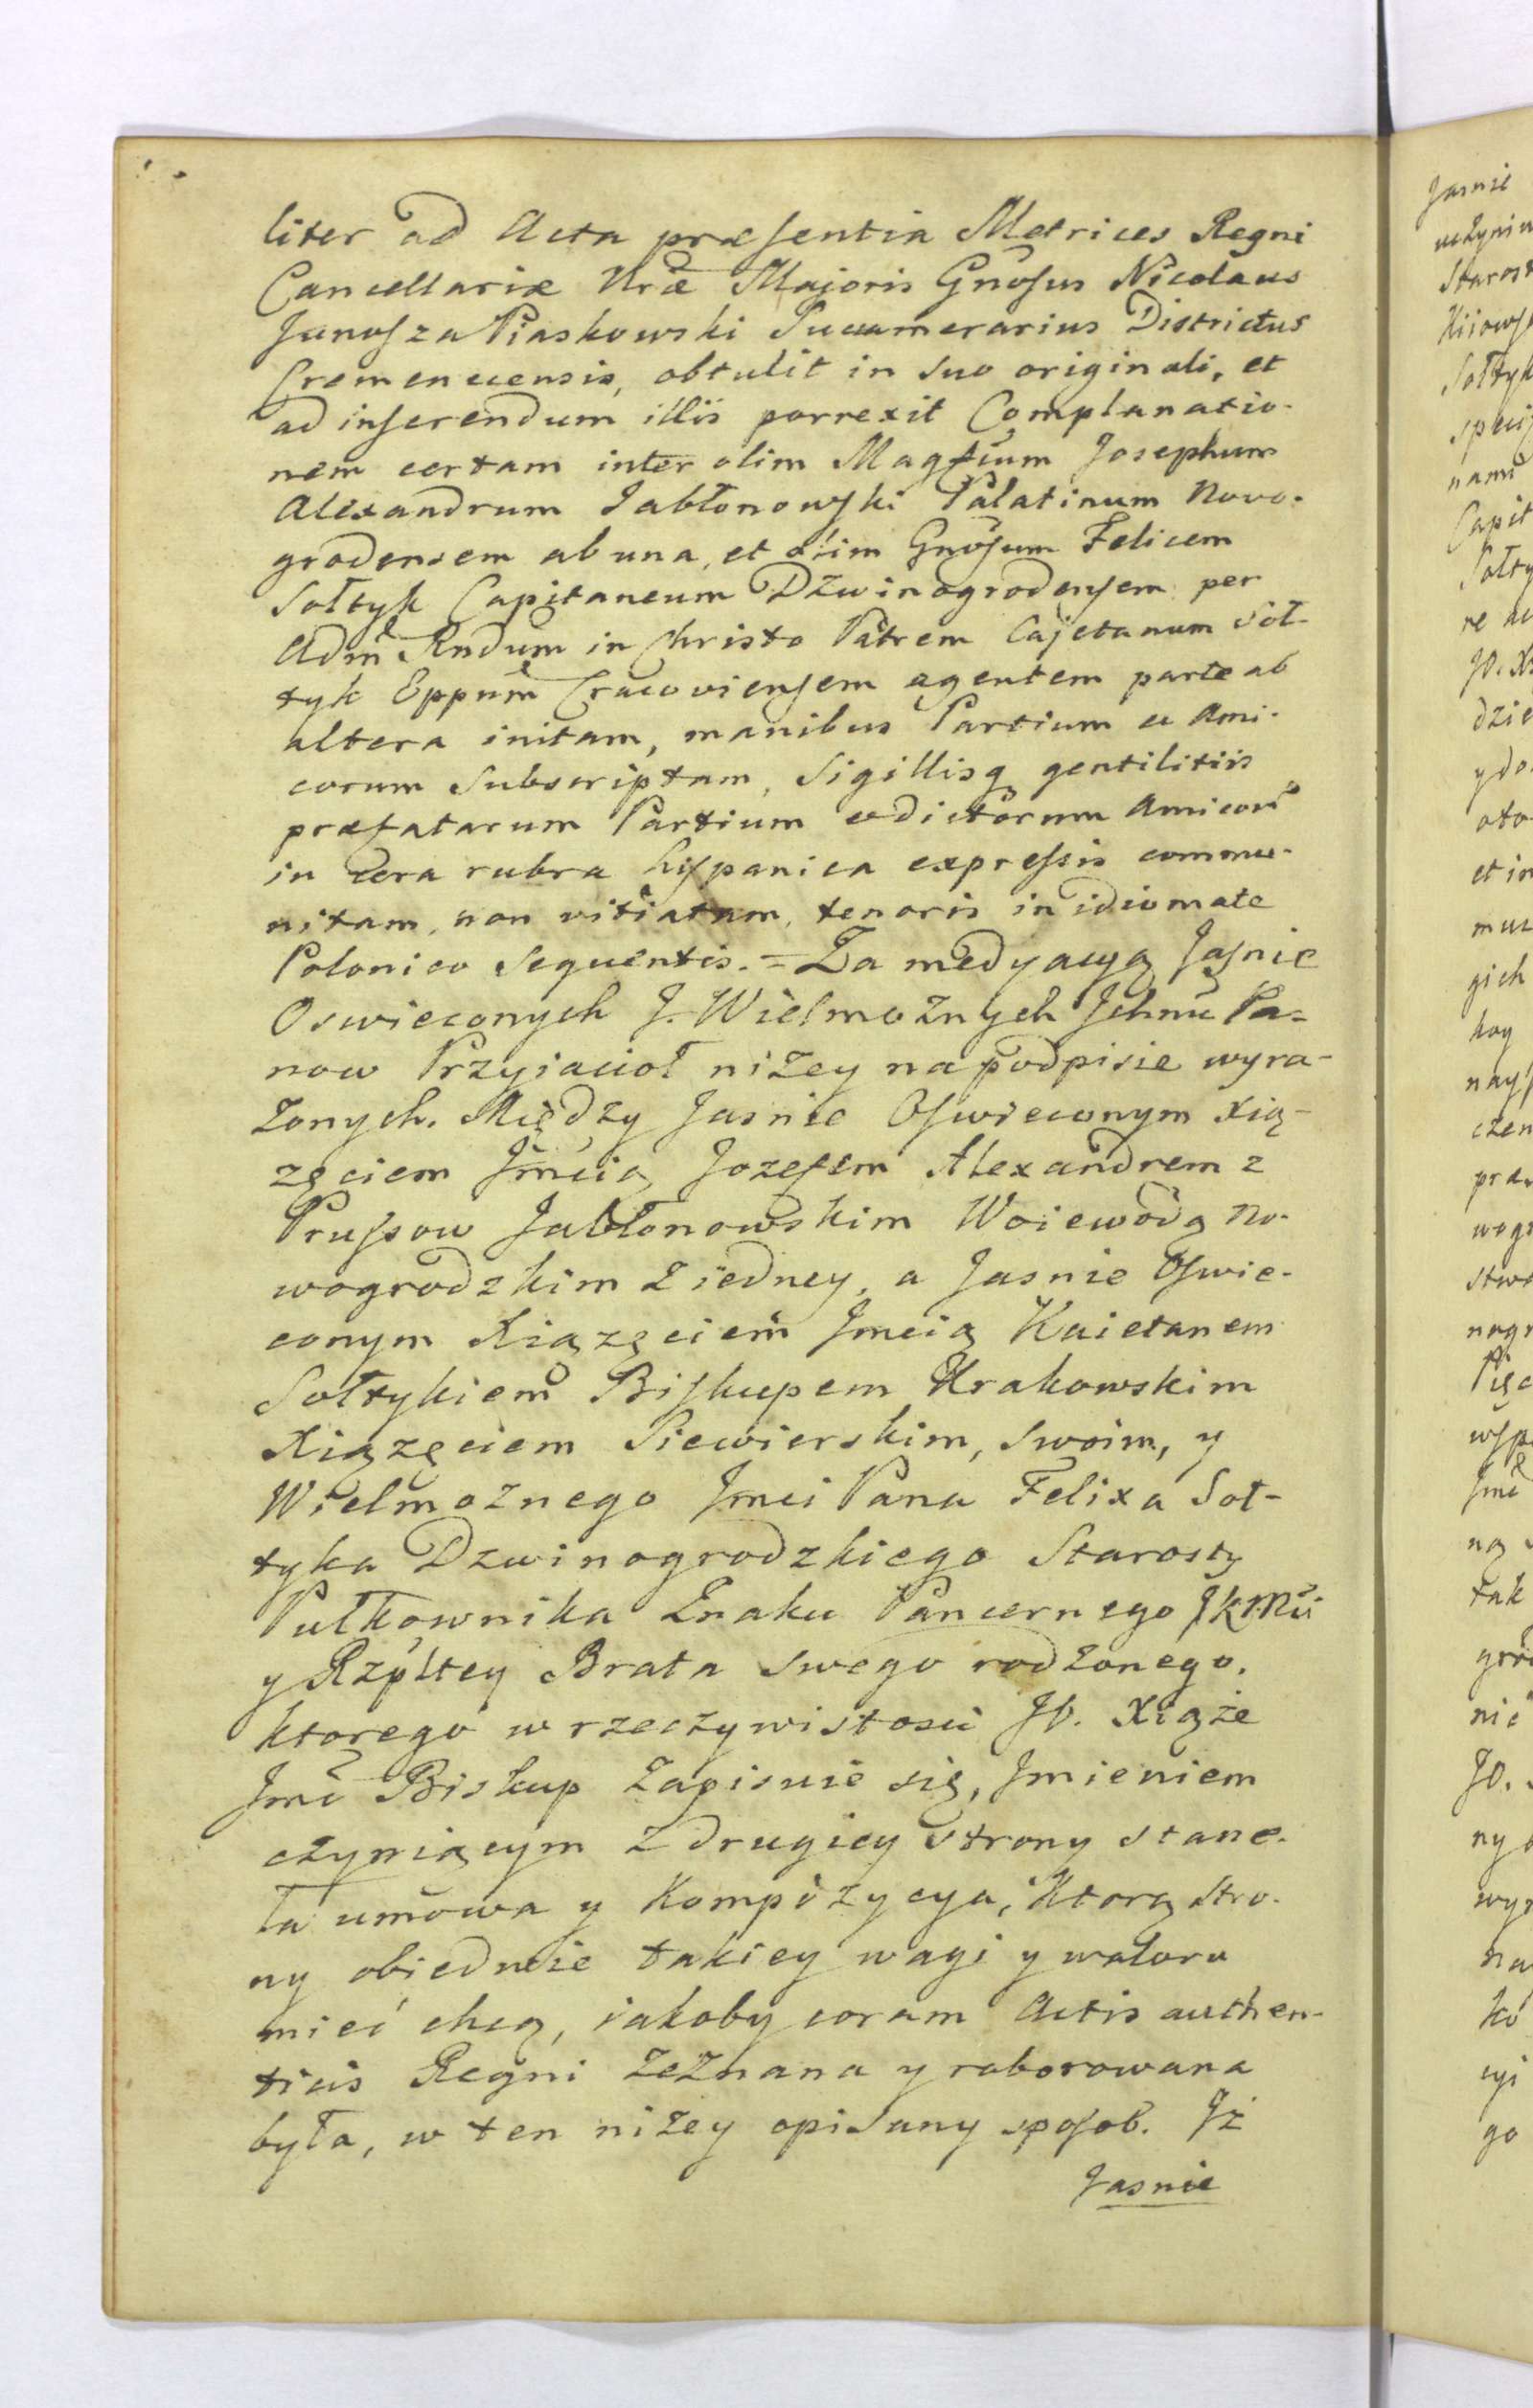 liter ad Acta præsentia Metrices Regni
Cancellariæ Nræ Majoris Gnosus Nicolaus
Junosza Piaskowski Succamerarius Districtus
Cremenecensis, obtulit in suo originali, et
ad inserendum illis porrexit Complanatio-
nem certam inter olim Magfcum Josephum
Alexandrum Jabłonowski Palatinum Novo-
grodensem ab una, et olim Gnosum Felicem
Sołtyk Capitaneum Dzwinogrodensem per
Adm Rndum in Christo Patrem Cajetanum Soł-
tyk Eppum Cracoviensem agentem parte ab
altera initam, manibus Partium et Ami-
corum subscriptam, Sigillisq gentilitiis
præfatarum Partium et dictorum Amicorũ
in cera rubra hispanica expressis commu-
nitam, non vitiatam, tenoris in idiomate
Polonico sequentis. = Za medyacyą Jasnie
Oswieconych J. Wielmoznych Jchmć Pa-
now Przyiacioł niżey na podpisie wyra-
żonych. Między Jasnie Oswieconym Xią-
zęciem Jmcią Jozefem Alexandrem z
Prussow Jabłonowskim Woiewodą No-
wogrodzkim z iedney, a Jasnie Oswie-
conym Xiązęciem Jmcią Kaietanem
Sołtykiem Biskupem Krakowskim
Xiązęciem Siewierskim, swoim, y
Wielmożnego Jmci Pana Felixa Soł-
tyka Dzwinogrodzkiego Starosty
Pułkownika Znaku Pancernego JKMci
y Rzpltey Brata swego rodzonego,
ktorego w rzeczywistosci JO. Xiąże
Jmć Biskup zapisuie się, Jmieniem
czyniącym z drugiey strony stane-
ła umowa y Kompozycya, ktorą stro-
ny obiedwie takiey wagi y waloru
mieć chcą, iakoby coram Actis authen-
ticis Regni zeznana y roborowana
była, w ten niżey opisany sposob. Jż
Jasnie